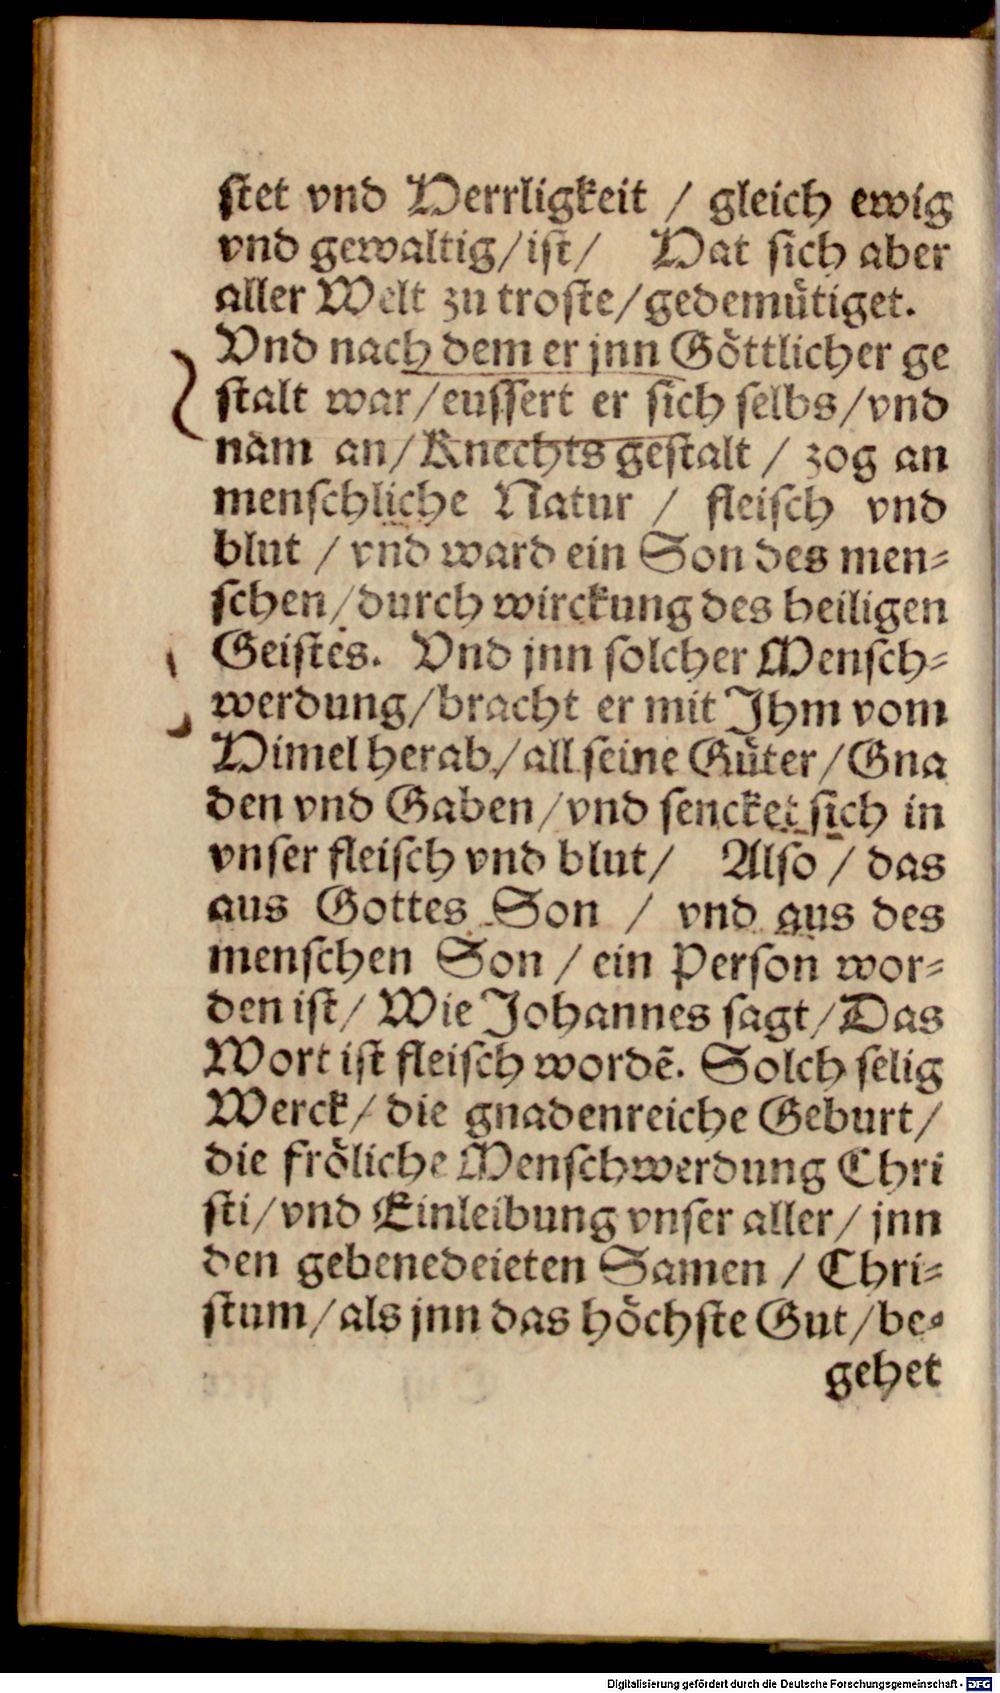 stet vnd Herrligkeit / gleich ewig
vnd gewaltig/ist/ Hat sich aber
aller Welt zu troste/gedemuͤtiget.
Vnd nach dem er jnn Goͤttlicher ge
stalt war/eussert er sich selbs/vnd
nam an/Knechts gestalt / zog an
menschliche Natur / fleisch vnd
blut / vnd ward ein Son des men-
schen/durch wirckung des heiligen
Geistes. Vnd jnn solcher Mensch-
werdung/bracht er mit Jhm vom
Himel herab/all seine Guͤter/Gna
den vnd Gaben/vnd sencket sich in
vnser fleisch vnd blut/ Also / das
aus Gottes Son / vnd aus des
menschen Son / ein Person wor-
den ist/ Wie Johannes sagt/Das
Wort ist fleisch wordē. Solch selig
Werck/ die gnadenreiche Geburt/
die froͤliche Menschwerdung Chri
sti/vnd Einleibung vnser aller/ jnn
den gebenedeieten Samen / Chri-
stum/als jnn das hoͤchste Gut/be-
gehet
Digitalisierung gefördert durch die Deutsche Forschungsgemeinschaft - DFG